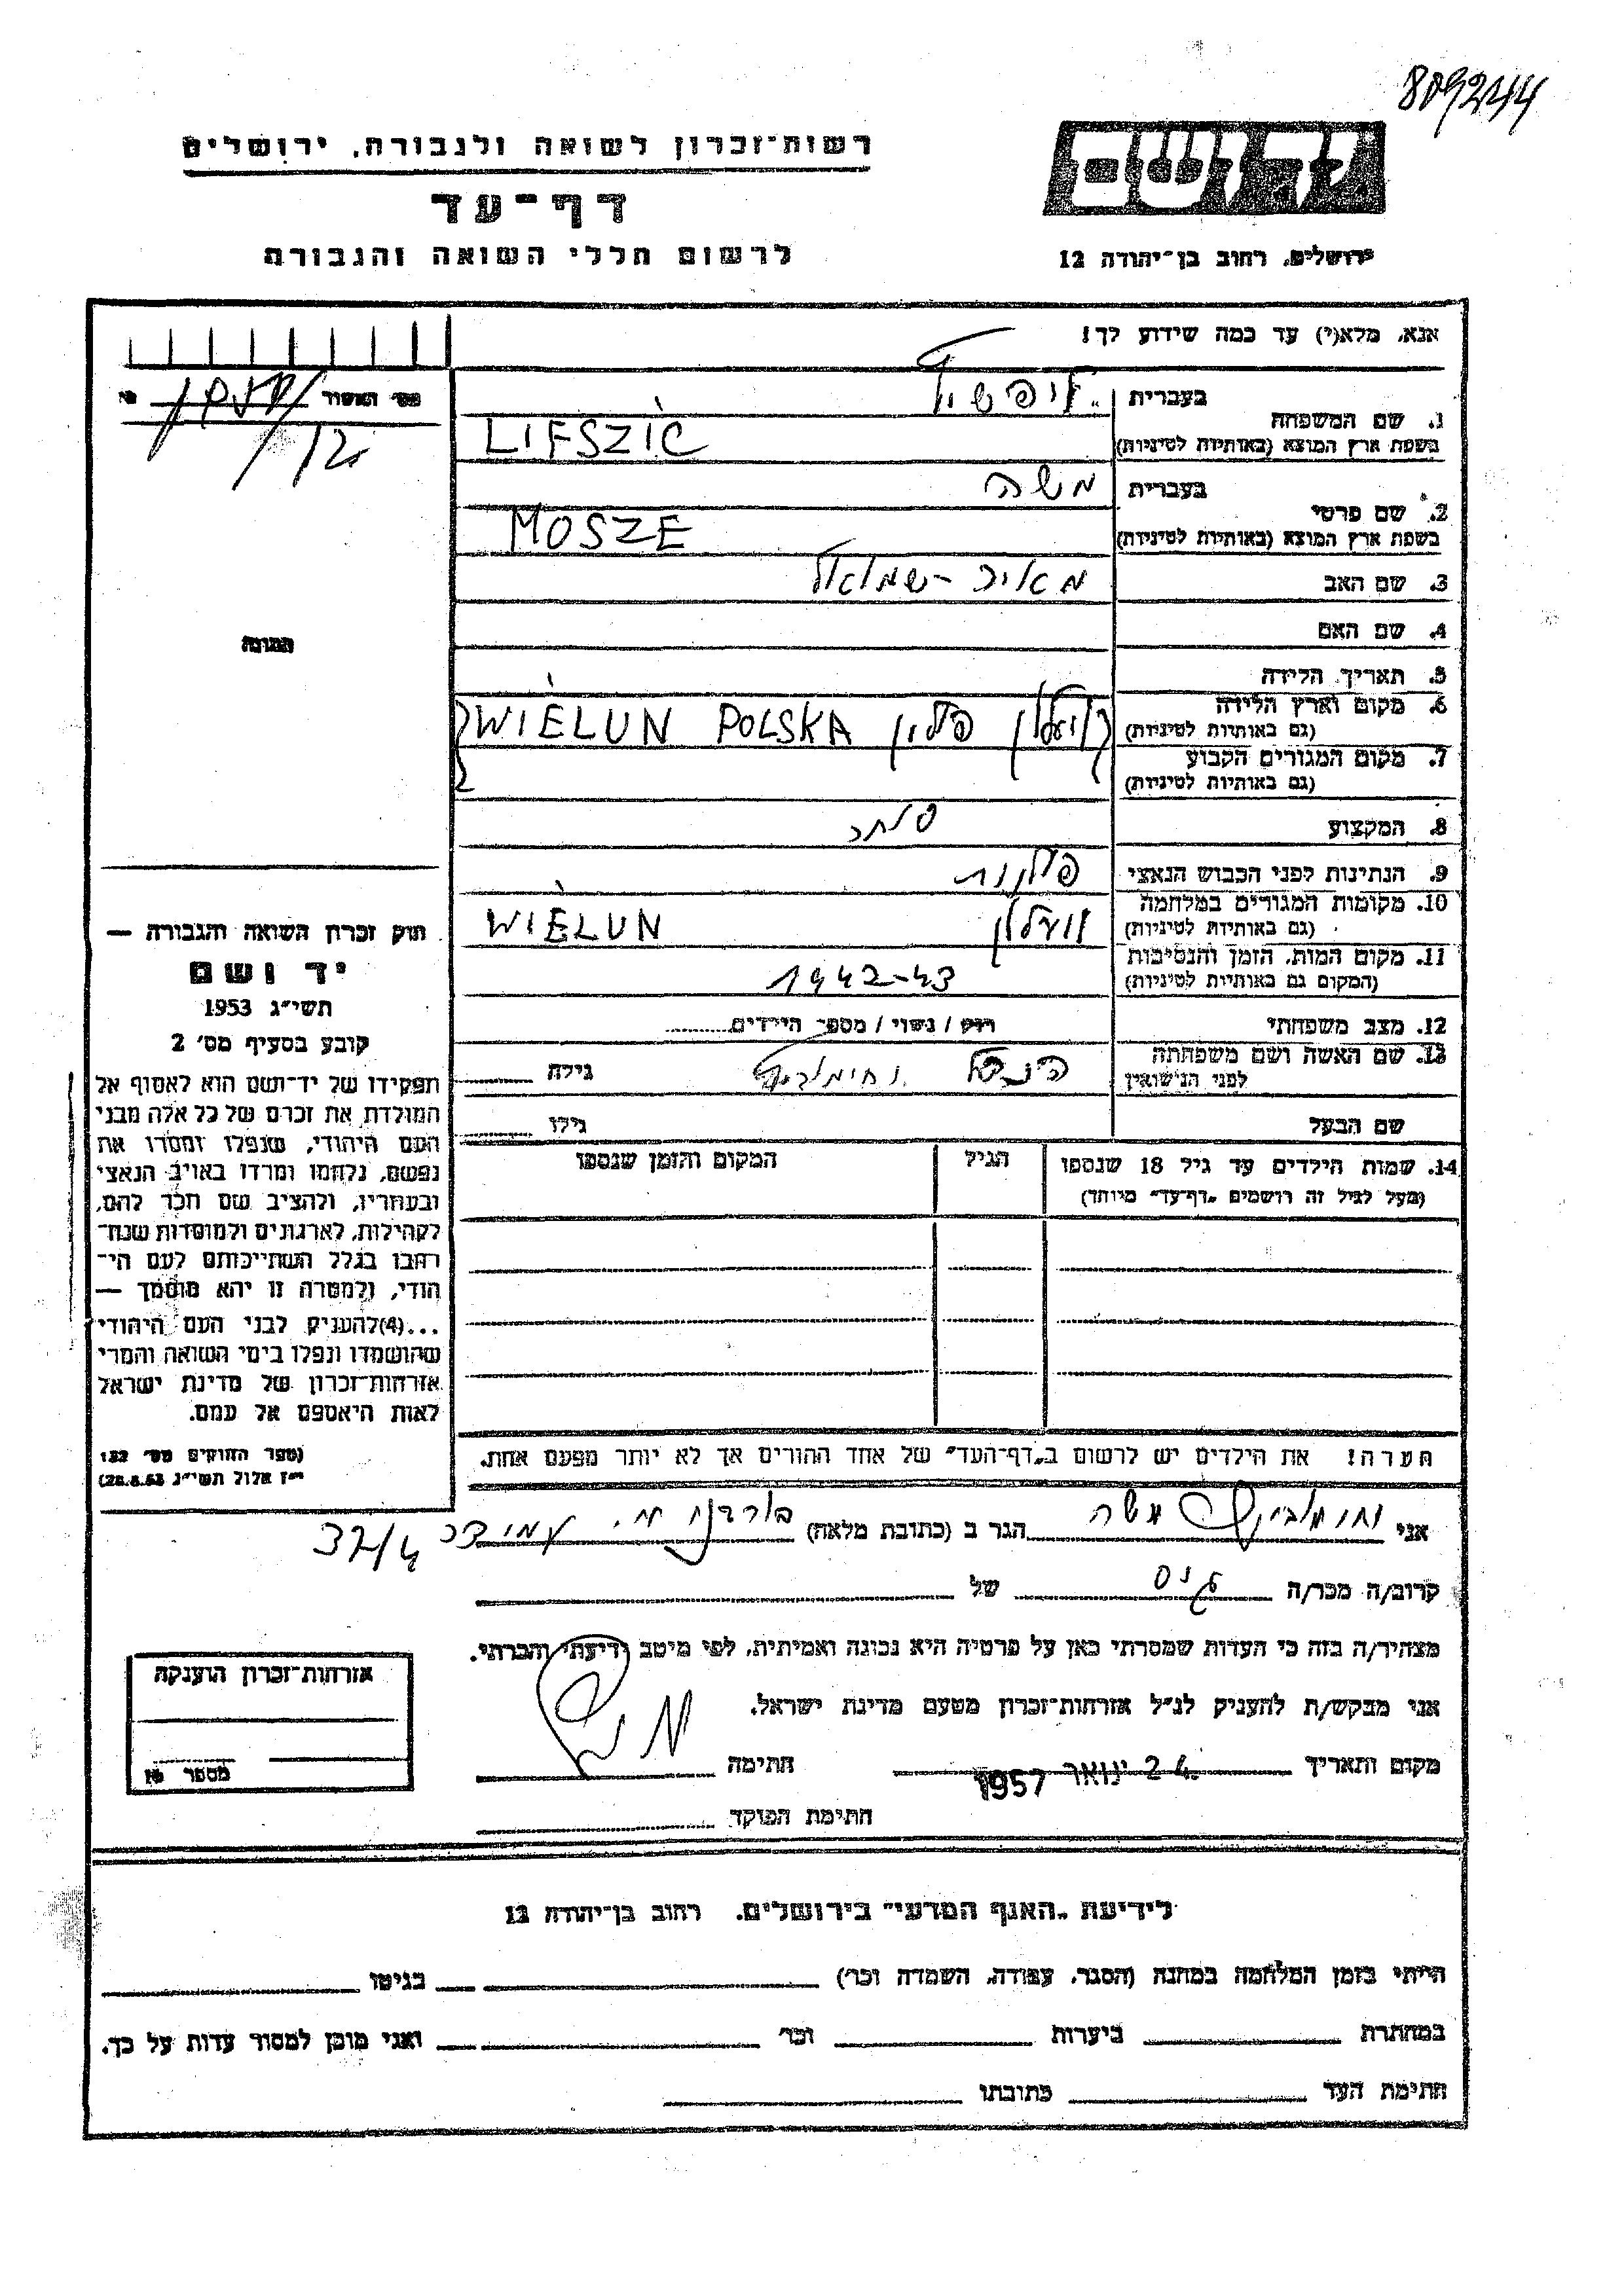 809244
רשות־זכרון לשואה ולגבורה, ירושלים
דף־עד
לרשום חללי השואה והגבורה
יד ושם
ירושלים, רחוב בן־יהודה 12
אנא, מלא(י) עד כמה שידוע לך!
מס׳ האשור
1. שם המשפחה
בעברית ליפשיץ
בשפת ארץ המוצא (באותיות לטיניות) LIFSZIC
2. שם פרטי
בעברית משה
בשפת ארץ המוצא (באותיות לטיניות) MOSZE
3. שם האב מאיר-שמואל
4. שם האם
5. תאריך הלידה
6. מקום וארץ הלידה
(גם באותיות לטיניות) פולין WIELUN POLSKA
7. מקום המגורים הקבוע
(גם באותיות לטיניות)
8. המקצוע סוחר
9. הנתינות לפני הכבוש הנאצי פולנית
10. מקומות המגורים במלחמה
(גם באותיות לטיניות) WIELUN
11. מקום המות, הזמן והנסיבות
(המקום גם באותיות לטיניות) 1942-43
12. מצב משפחתי רוק / נשוי / מספר הילדים
13. שם האשה ושם משפחתה
לפני הנישואין גילה
שם הבעל גילו
14. שמות הילדים עד גיל 18 שנספו הגיל המקום והזמן שנספו
(מעל לגיל זה רושמים „דף־עד״ מיוחד)
הערה! את הילדים יש לרשום ב„דף־העד״ של אחד ההורים אך לא יותר מפעם אחת.
תמונה
חוק זכרון השואה והגבורה —
יד ושם
תשי״ג 1953
קובע בסעיף מס׳ 2
תפקידו של יד־ושם הוא לאסוף אל
המולדת את זכרם של כל אלה מבני
העם היהודי, שנפלו ומסרו את
נפשם, נלחמו ומרדו באויב הנאצי
ובעוזריו, ולהציב שם וזכר להם,
לקהילות, לארגונים ולמוסדות שנח־
רבו בגלל השתייכותם לעם הי־
הודי, ולמטרה זו יהא מוסמך —
...(4)להעניק לבני העם היהודי
שהושמדו ונפלו בימי השואה והמרי
אזרחות־זכרון של מדינת ישראל
לאות היאספם אל עמם.
(ספר החוקים מס׳ 132
י״ז אלול תשי״ג 28.8.53)
אני משה הגר ב (כתובת מלאה) 32/4
קרוב/ה מכר/ה גיס של
מצהיר/ה בזה כי העדות שמסרתי כאן על פרטיה היא נכונה ואמיתית, לפי מיטב ידיעתי והכרתי.
אני מבקש/ת להעניק לנ״ל אזרחות־זכרון מטעם מדינת ישראל.
מקום ותאריך 24 ינואר 1957 חתימה
חתימת הפוקד
אזרחות־זכרון הוענקה
מספר №
לידיעת „האגף המדעי״ בירושלים. רחוב בן־יהודה 12
הייתי בזמן המלחמה במחנה (הסגר, עבודה, השמדה וכו׳) בגיטו
במחתרת ביערות וכו׳ ואני מוכן למסור עדות על כך.
חתימת העד כתובתו